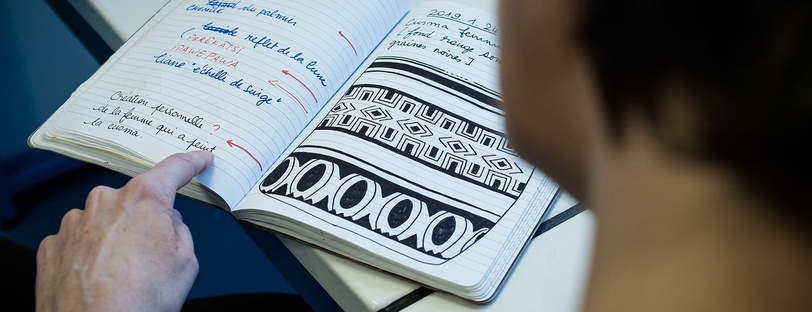 du palmier
reflet de la lune
IPAWEPAWA
liane "échelle de singe"
Création personnelle ?
de la femme qui a peint
la cusma
2019 1 24
Cusma féminine
[fond rouge
graines noires]